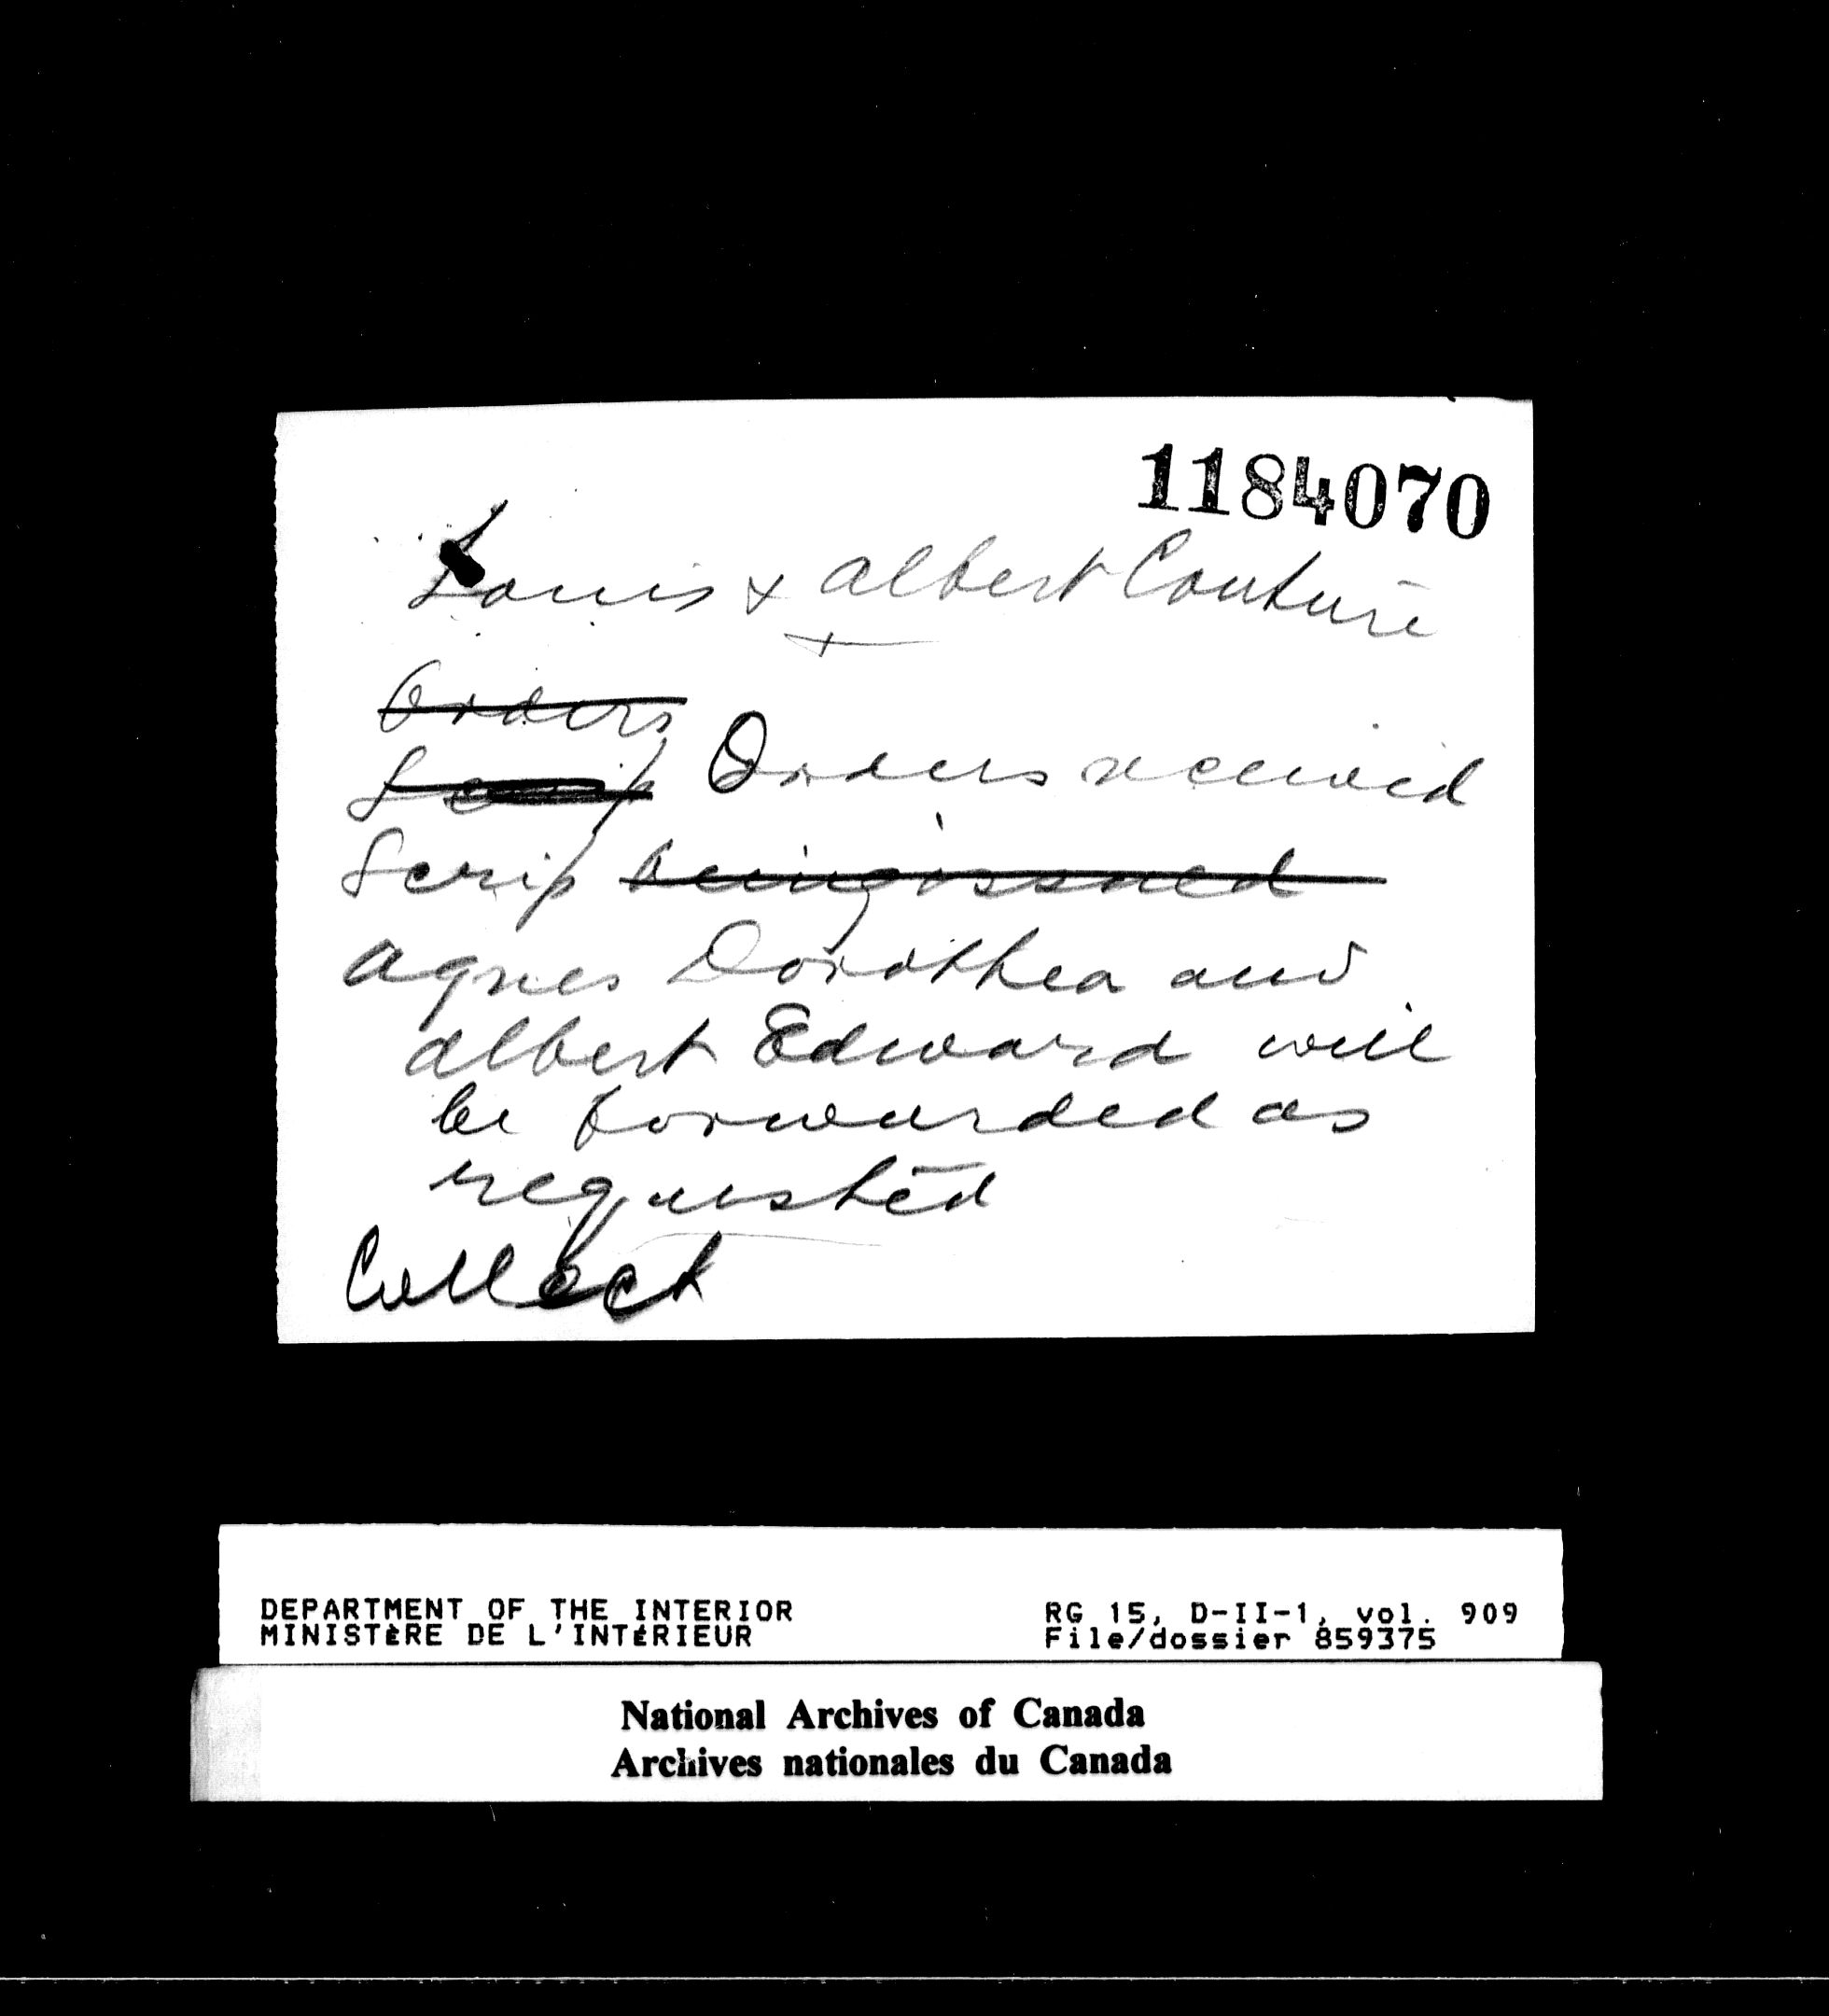 1184070
Louis & Albert Couture
Orders
Scrip Orders received
Scrip being issued
Agnes Dorothea and
Albert Edward will
be forwarded as
requested
Collect
DEPARTMENT OF THE INTERIOR RG 15, D-II-1, vol. 909
MINISTÈRE DE L'INTÉRIEUR File/dossier 859375
National Archives of Canada
Archives nationales du Canada